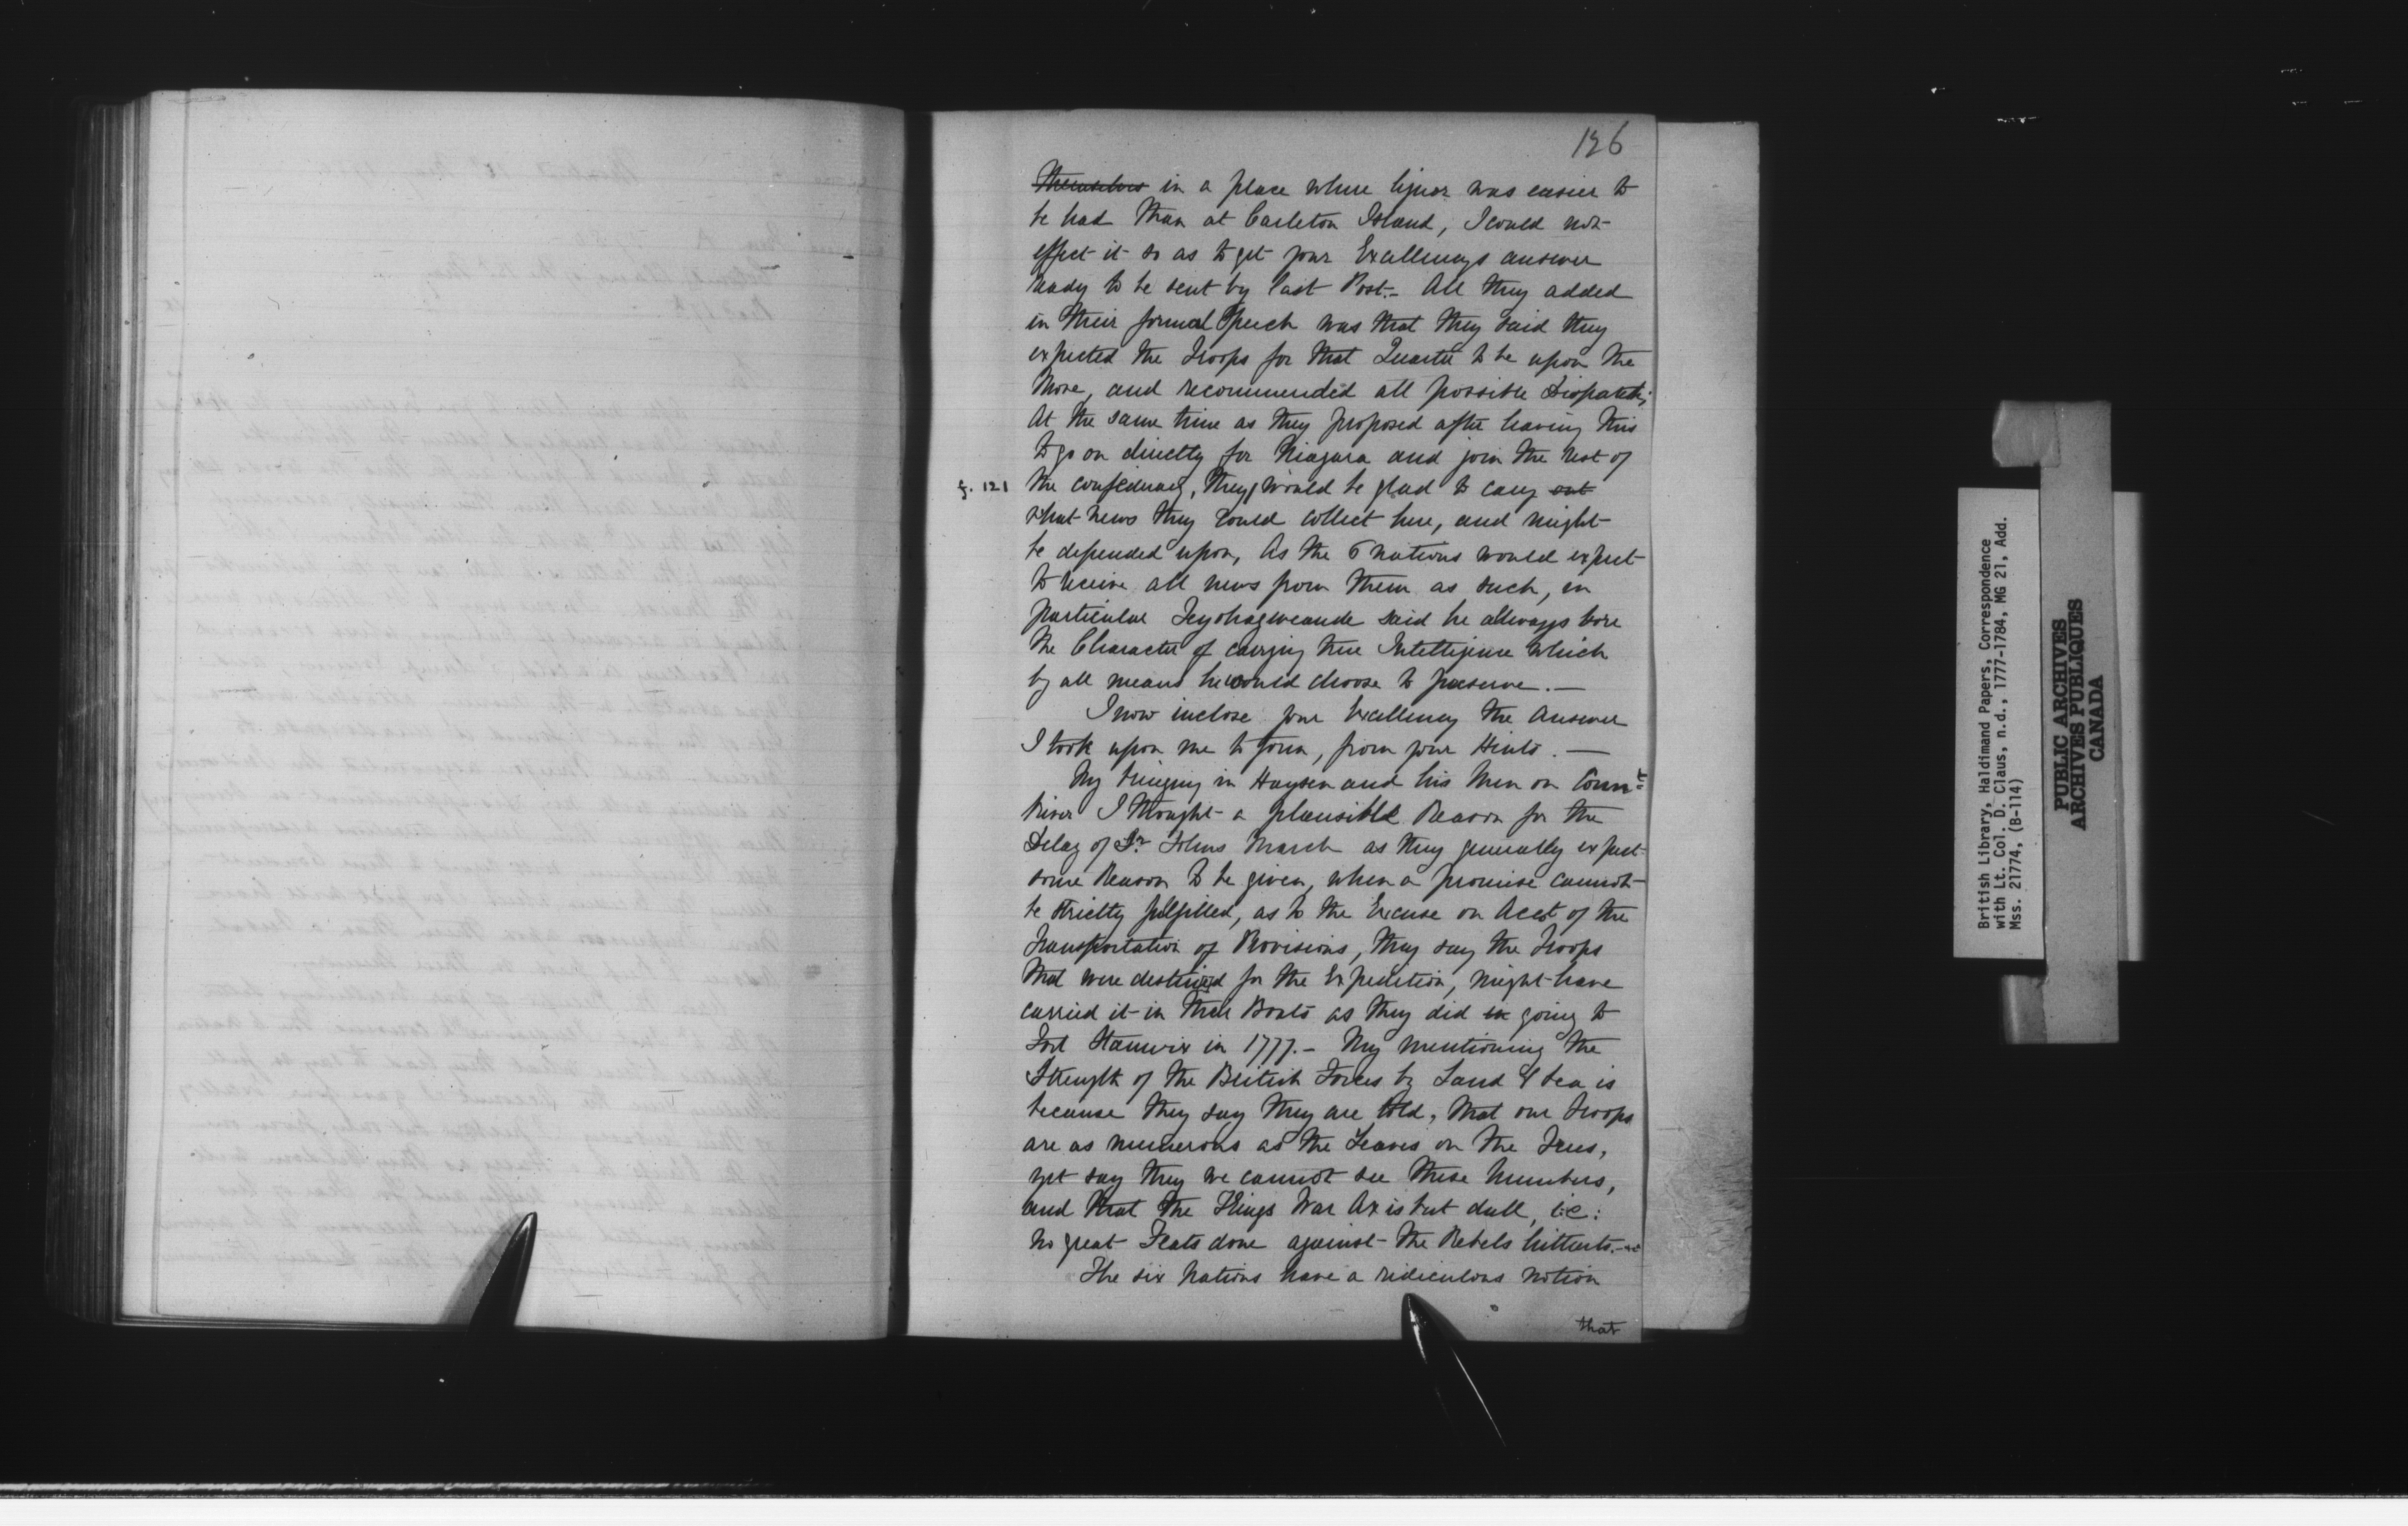 126
Themselves in a place where liquor was easier to
be had than at Carleton Island, I could not
effect it so as to get your Excellencys answer
ready to be sent by last Post.- All they added
in their formal Speech was that they said they
expected the Troops for that Quarter to be upon the
Move, and recommended all possible Dispatch;
At the same time as they proposed after leaving this
to go on directly for Niagara and join the rest of
f. 121 the confederacy, they would be glad to carry out
what news they could collect here, and might
be depended upon, As the 6 nations would expect
to receive all news from them as such, in
particular Teyohagweande said he allways bore
the Character of carrying true Intelligence which
by all means he would choose to preserve.—
I now inclose your Excellency the Answer
I took upon me to form, from your Hints.—
My bringing in Haysen and his Men on Connt=
River I thought a plausible Reason for the
Delay of Sr Johns March as they generally expect
some Reason to be given, when a promise cannot
be strictly fulfilled, as to the Excuse on Acct of the
Transportation of Provisions, they say the Troops
that were destined for the Expedition, might have
carried it in their Boats as they did in going to
Fort Stanwix in 1777.- My mentioning the
Strength of the British Forces by Land & Sea is
because they say they are told, that our troops
are as numerous as the Leaves on the Trees,
yet say they we cannot see these Numbers,
and that the Kings War Ax is but dull, i:e:
no great Feats done against the Rebels hitherto.-
The six Nations have a ridiculous notion
that
British Library, Haldimand Papers, Correspondence
with Lt. Col. D. Claus, n.d., 1777-1784, MG 21, Add.
Mss. 21774, (B-114)
PUBLIC ARCHIVES
ARCHIVES PUBLIQUES
CANADA